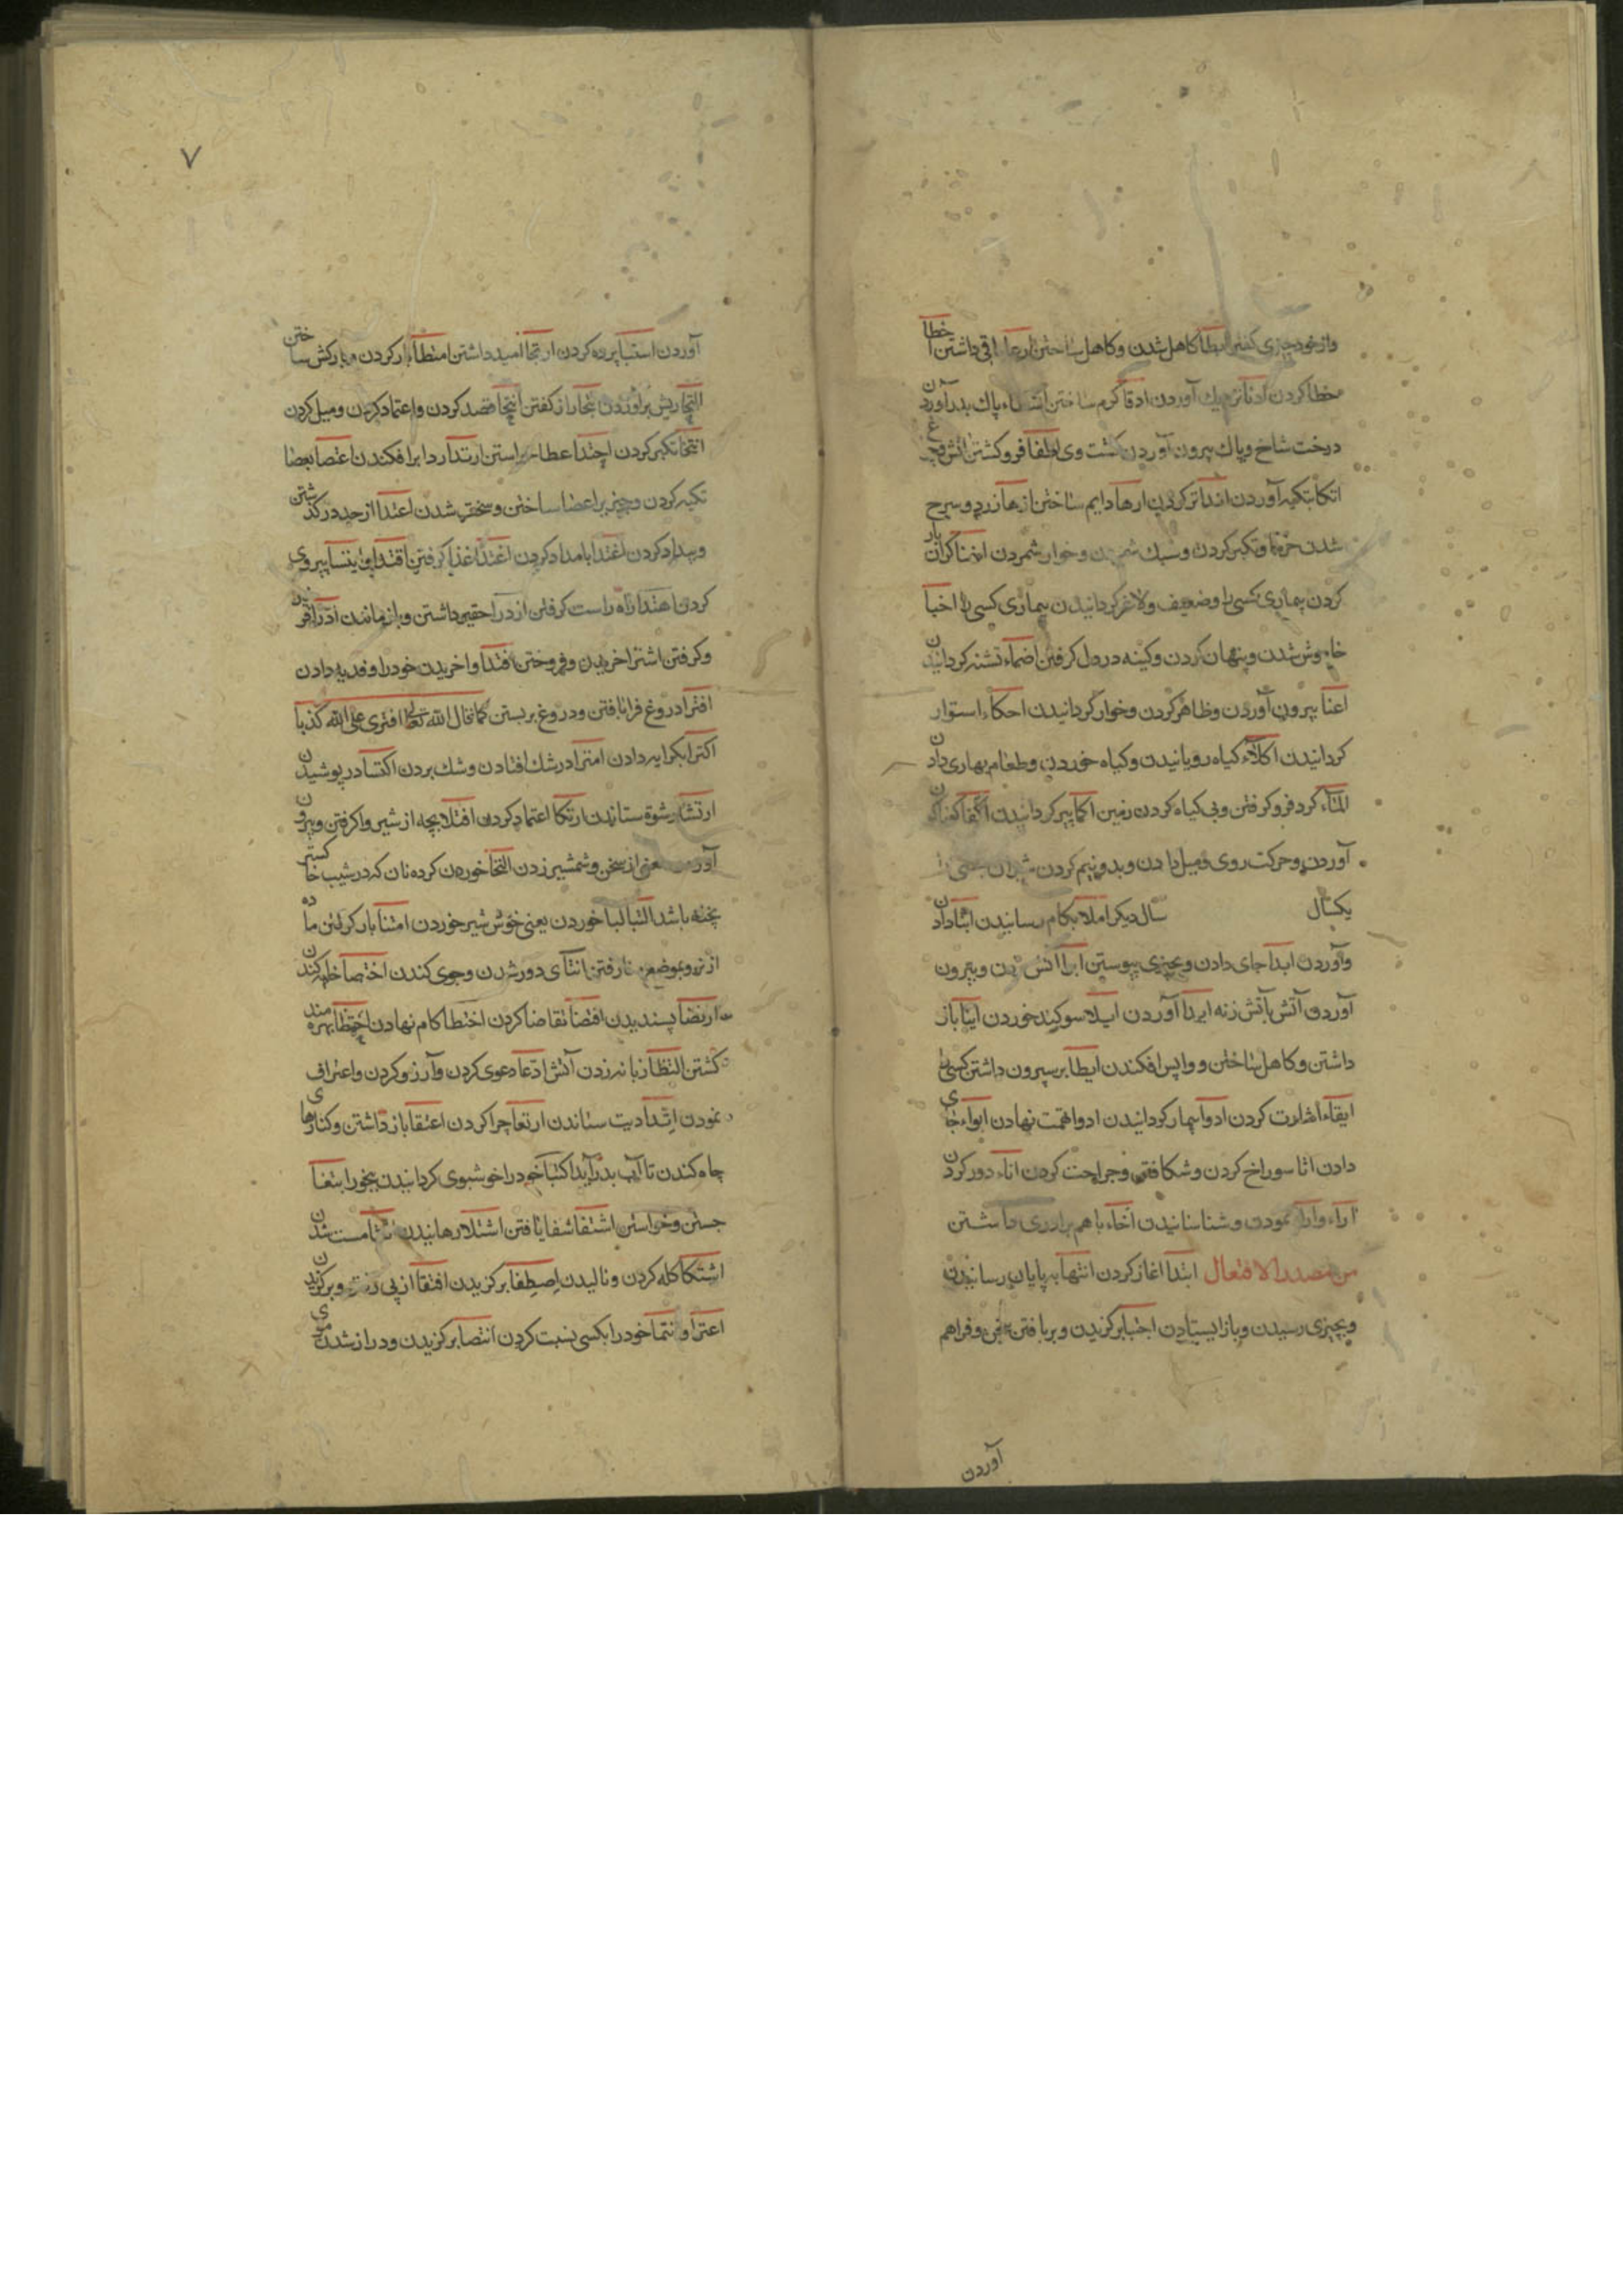 وازخود چیزی کفتن ابطا کاهل شدن وکاهل ساختن ارعا باقی داشتن اخطا
خطا کردن ادنا نزدیك آوردن ادفا کرم ساختن پاك بدر آوردن
درخت شاخ وپاك بیرون آوردن کشت وی اطفا فرو کشتن آتش وچراغ
اتکا تکیه آوردن اندا تر کردن ارها دایم ساختن ازها زرد وسرخ
شدن خرما وتکبر کردن وسبك شمردن وخوار شمردن اضنا کران بار
کردن بیماری کسی را وضعیف ولاغر کردانیدن بیماری کسی را اخبا
خاموش شدن وپنهان کردن وکینه در دل کرفتن اضماء تشنه کردانیدن
اعنا بیرون آوردن وظاهر کردن وخوار کردانیدن احکاء استوار
کردانیدن اکلاء کیاه رویانیدن وکیاه خوردن وطعام بهاری دادن
الماء کرد فرو کرفتن وبی کیاه کردن زمین اکما پیر کردانیدن
آوردن وحرکت روی ومیل دادن وبدو نیم کردن شتران یعنی
یکسال سال دیکر املا بکام رسانیدن ایتا دادن
وآوردن ایوا جای دادن وبچیزی پیوستن ایرا آتش زدن وبیرون
آوردن آتش باتش زنه ایردا آوردن ایلا سوکند خوردن اینا باز
داشتن وکاهل ساختن وواپس افکندن ایطا بر سپرون داشتن کسی را
ایفاء اشارت کردن ادوا بیمار کردانیدن ادوا تهمت نهادن ایواء جای
دادن اثا سوراخ کردن وشکافتن وجراحت کردن اناء دور کردن
اراء وارا نمودن وشناسانیدن آخاء باهم برادری داشتن
من مصدر الافتعال ابتدا اغاز کردن انتها به پایان رسانیدن
وبچیزی رسیدن وباز ایستادن اجتبا برکزیدن وبر بافتن وفراهم
آوردن
۷
آوردن استبا پرده کردن ارتجا امید داشتن امتطا بار کردن وبارکش ساختن
التحا ریش برآوردن انتجا راز کفتن انتحا قصد کردن واعتماد کردن ومیل کردن
انتخا تکبر کردن اجتدا عطا خواستن ارتدا ردا بر افکندن اعتصا بعصا
تکیه کردن وچیز بر اعضا ساختن وسخت شدن اعتدا از حد درکذشتن
وبیداد کردن اغتدا بامداد کردن اغتذا غذا کرفتن اقتدا پیروی
کردن اهتدا راه راست کرفتن ازدرا حقیر داشتن وباز ماندن ادرا
وکرفتن اشترا خریدن وفروختن افتدا واخریدن خود را وفدیه دادن
افترا دروغ فرا بافتن ودروغ بربستن کما قال الله تعالی افتری علی الله کذبا
اکترا بکرایه دادن امترا در شك افتادن وشك بردن اکتسا در پوشیدن
ارتشا رشوة ستاندن ارتکا اعتماد کردن افتلا بچه از شیر وا کرفتن وبیرون
آوردن معنی از سخن وشمشیر زدن خوردن کرده نان که در شیب خاکستر
پخته باشد التبا لبا خوردن یعنی خوش شیر خوردن امتنا بار کرفتن ماده
از نر وبموضع منا رفتن انتآی دور شدن وجوی کندن اختصا خایه کندن
ارتضا پسندیدن اقتضا تقاضا کردن اختطا کام نهادن احتظا بهره مند
کشتن التظا زبانه زدن آتش ادعا دعوی کردن وآرزو کردن واعتراف
نمودن اتدا دیت ستاندن ارتعا چرا کردن اعتقا باز داشتن وکنارهای
چاه کندن تا آب بدر آید اکتبا خود را خوشبوی کردانیدن ببخور ابتغا
جستن وخواستن اشتفا شفا یافتن اشتلا رهانیدن مست شدن
اشتکا کله کردن ونالیدن اصطفا برکزیدن اقتفا از پی رفتن وبرکزیدن
اعتزا وانتما خود را بکسی نسبت کردن انتصا برکزیدن ودراز شدن موی